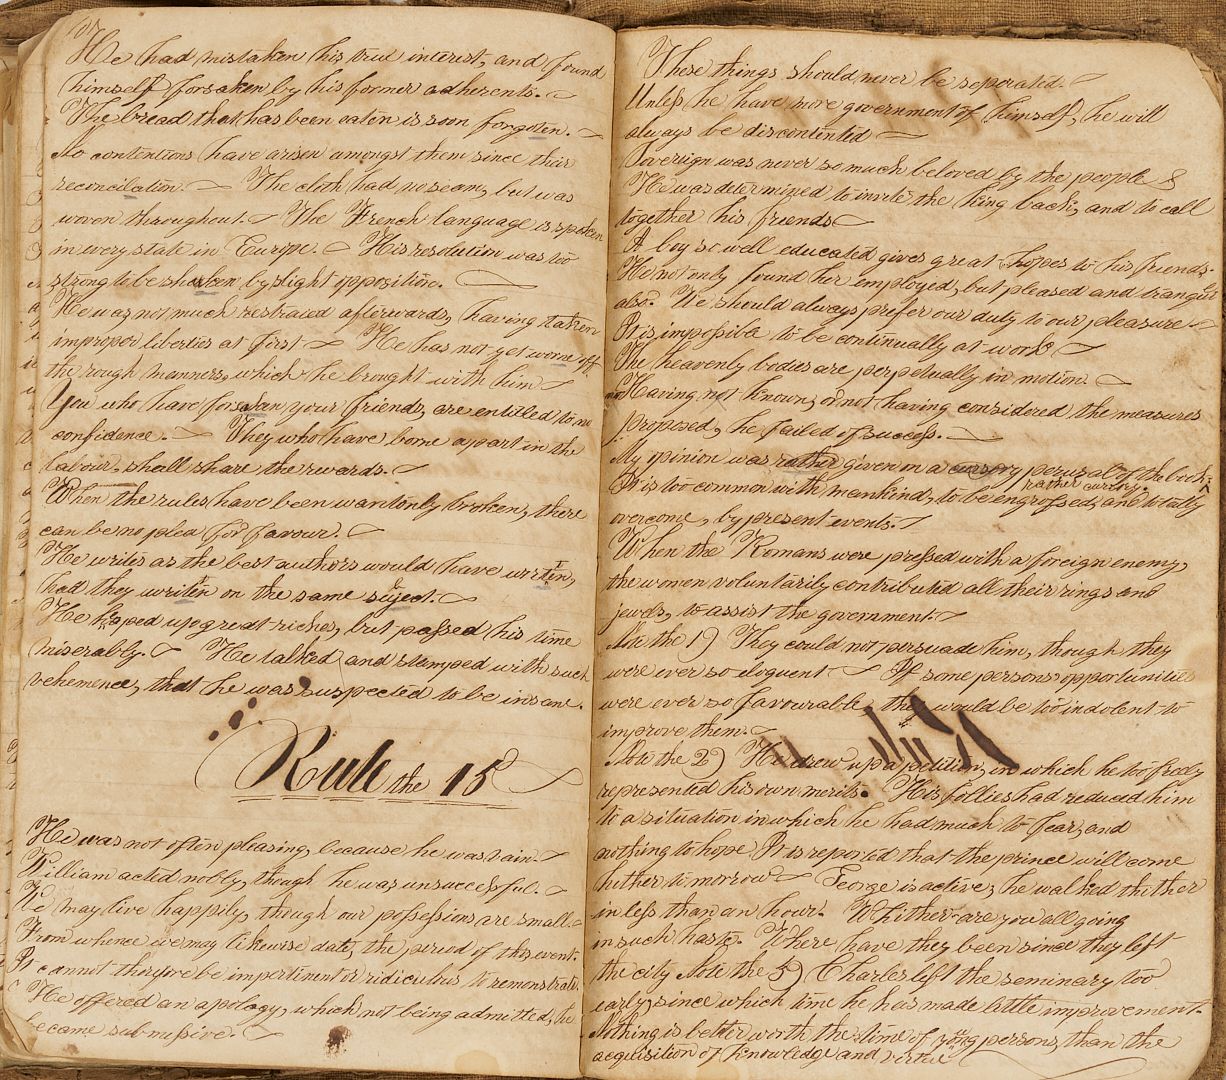 He had mistaken his true interest, and found
himself forsaken by his former adherents.
The bread that has been eaten is soon forgoten.
No contentions have arisen amongst them since their
reconcilation. The cloth had no seam, but was
woven throughout. The French language is spoken
in every state in Europe. His resolution was too
strong to be shaken by slight opposition.
He was not much restrained afterwards, having taken
improper liberties at first. He has not yet worne off
the rough manners, which he brought with him
You who have forsaken your friends, are entitled to no
confidence. They who have borne a part in the
labour, shall share the rewards.
When the rules have been wantonly broken, there
can be no plea for favour.
He writes as the best authors would have writen,
had they writen on the same suject.
He heaped up great riches, but passed his time
miserably. He talked and stamped with such
vehemence, that he was suspected to be insane.
Rule the 15
He was not often pleasing, because he was vain.
William acted nobly, though he was unsuccessful.
We may live happily, though our possessions are small.
From whence we may likewise date, the period of this event.
It cannot therefore be impertinent or ridiculous to remonstrate.
He offered an apology, which not being admitted, he
became submissive.
These things should never be seperated.
Unless he have more government of himself, he will
always be discontented
Sovereign was never so much beloved by the people
He was determined to invite the king back, and to call
together his friends
A boy so well educated gives great hopes to his friends.
He not only found her employed, but pleased and tranquil
also. We should always prefer our duty to our pleasure
It is impossible to be continually at work
The heavenly bodies are perpetually in motion.
Having not known, or not having considered the measures
proposed, he failed of success.
My opinion was rather given on a cursory perusal of the book
rather cursory
It is too common with mankind, to be engrossed, and totally
overcome, by present events.
When the Romans were pressed with a foreign enemy,
the women voluntarily contributed all their rings and
jewels, to assist the government.
Note the 1) They could not persuade him, though they
were ever so eloquent If some persons opportunities
were ever so favourable, they would be too indolent to
improve them.
Note the 2) He drew up a petition, in which he too freely
represented his own merits. His follies had reduced him
to a situation in which he had much to fear, and
nothing to hope It is reported that the prince will come
hither to morrow George is active; he walked thither
in less than an hour. Whither are you all going
in such haste. Where have they been since they left
the city Note the 3) Charles left the seminary too
early, since which time he has made little improvement.
Nothing is better worth the time of young persons, than the
acquisition of knowledge and virtue